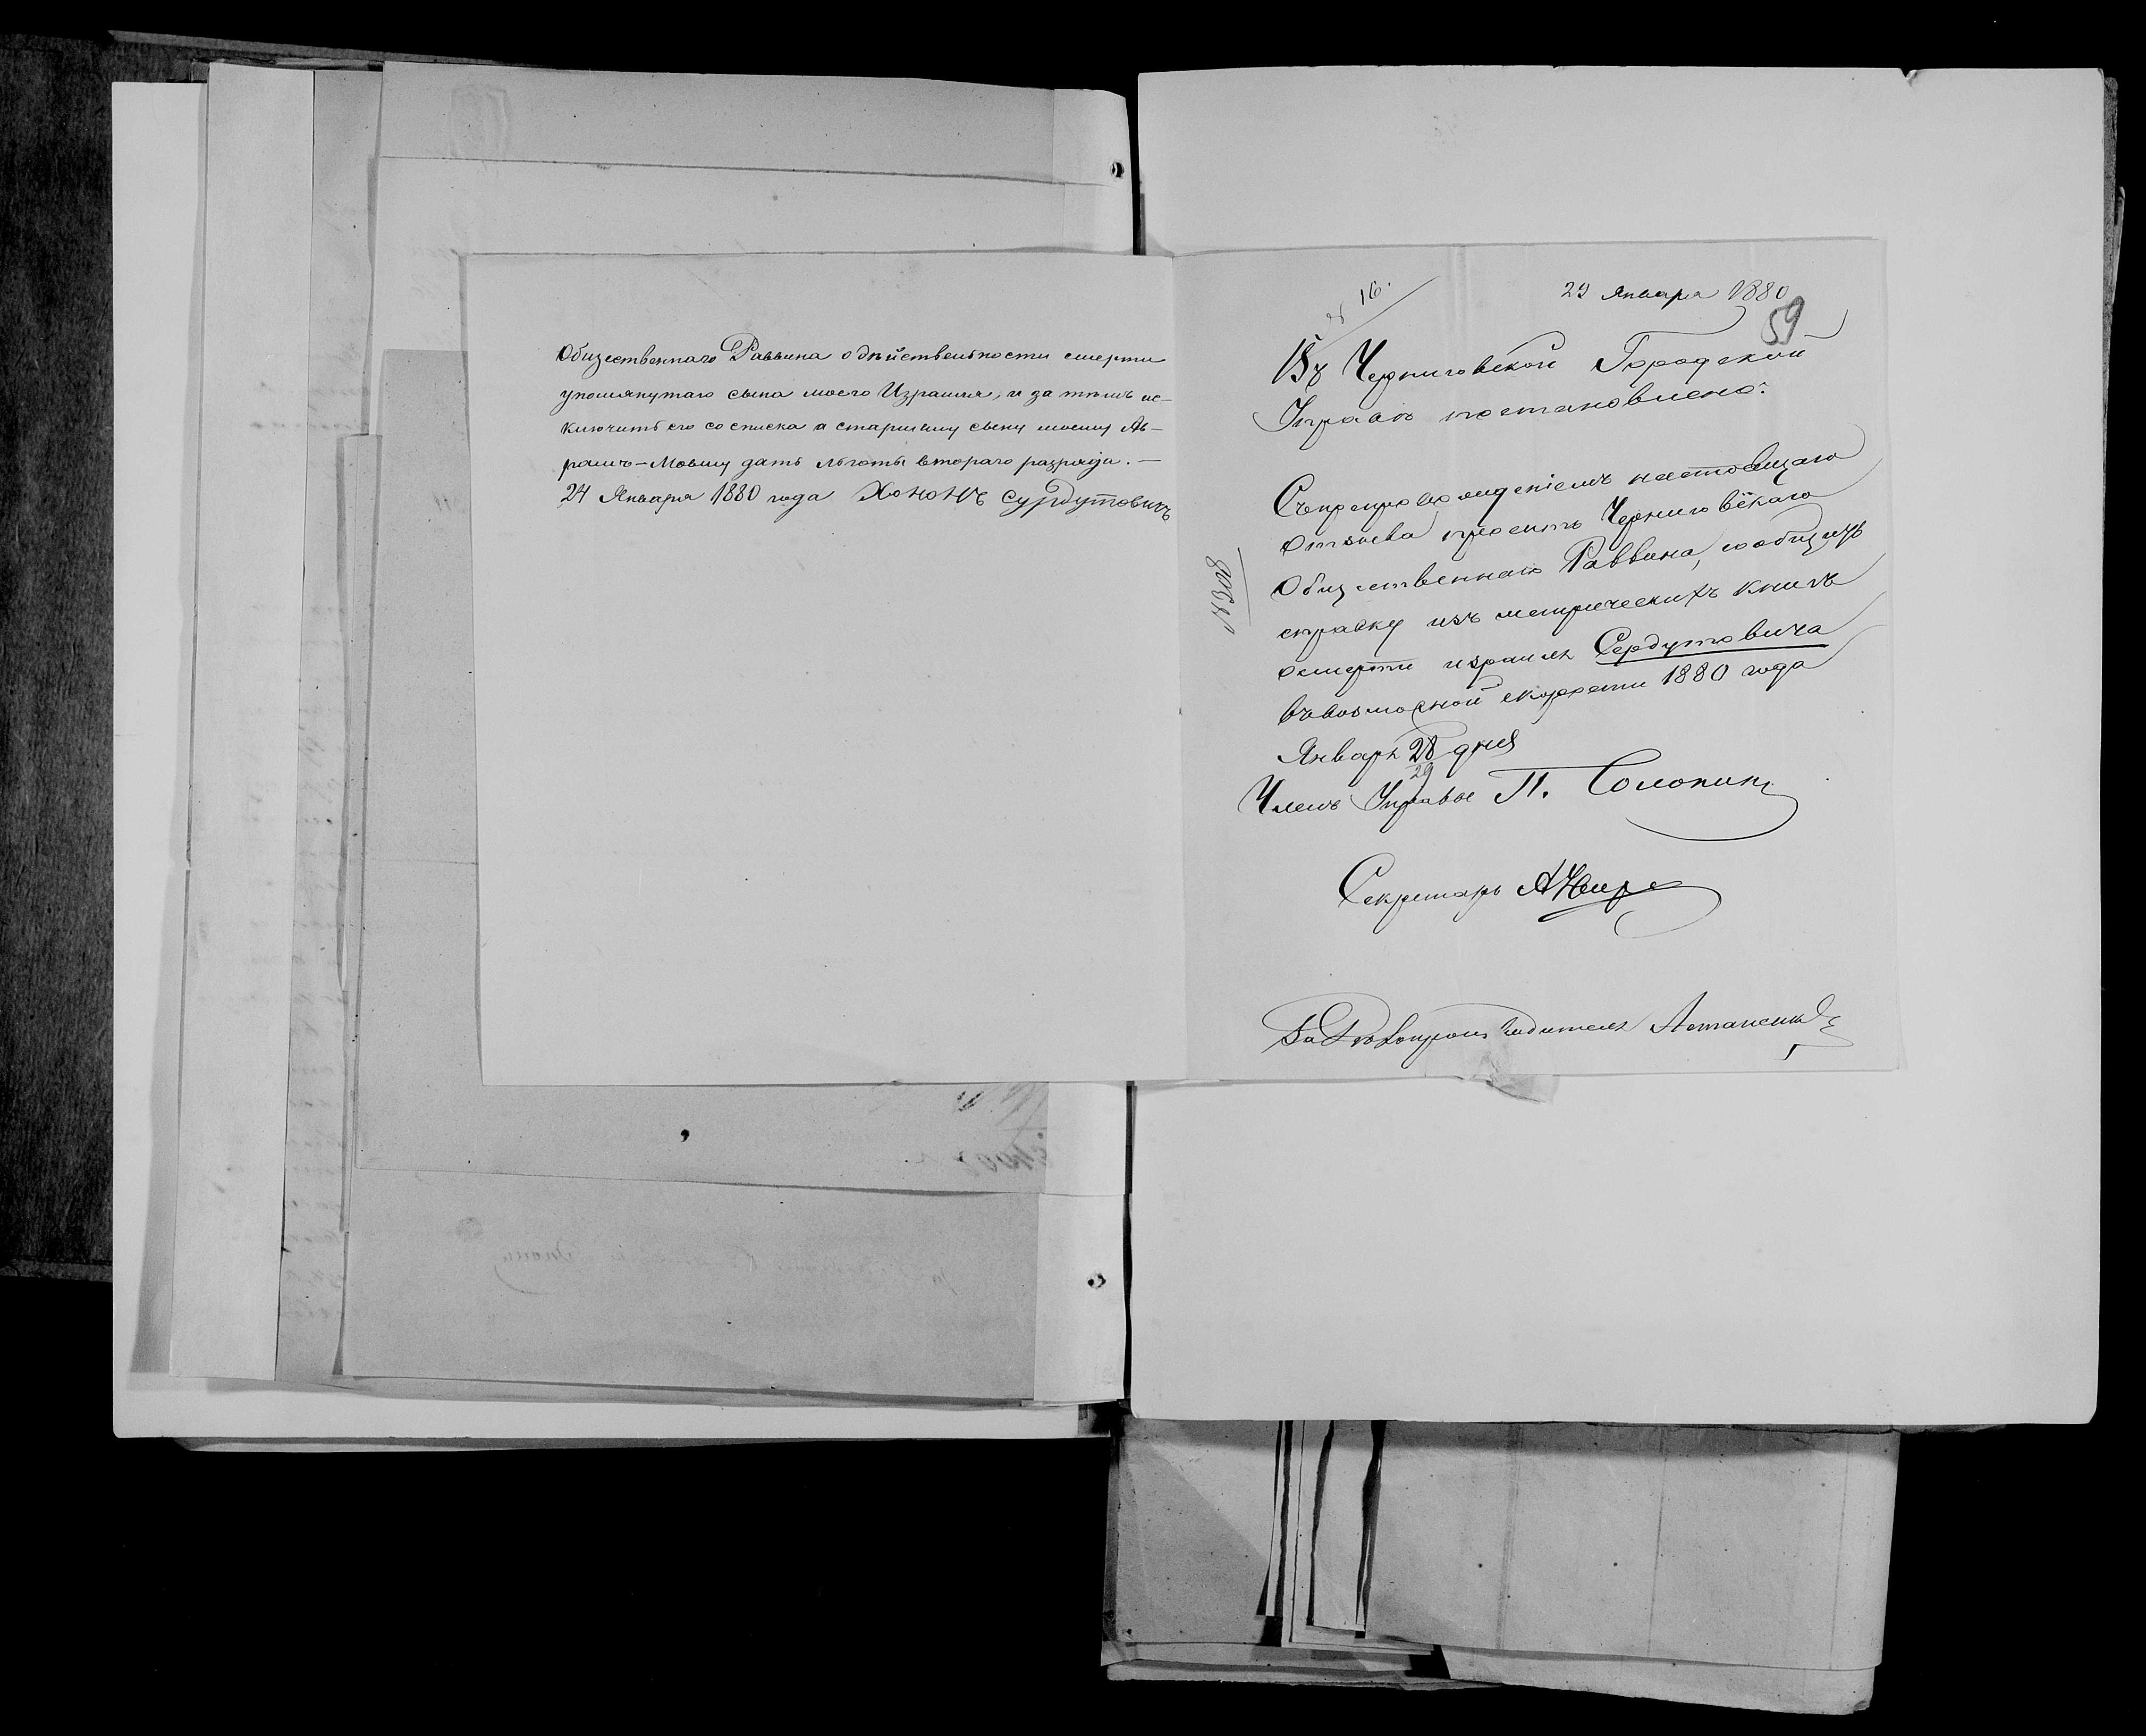 Общественнаго Раввина о дѣйствительности смерти
упомянутаго сына моего Израиля, и за тѣмъ ис-
ключить его со списка а старшему сыну моему Аб-
рамъ-Мовшу дать льготы втораго разряда. —
24 Января 1880 года Хононъ Сурдутовичъ
№ 16.
29 Января 1880
59
Въ Черниговской Городской
Управѣ постановлено:
Съпрепровожденіемъ настоящаго
отзыва просить Черниговскаго
Общественнаго Раввина, сообщить
№308
справку изъ метрическихъ книгъ
осмерти израиля Сердутовича
въвозможной скорости 1880 года
Январь 28 дня
29
Членъ Управы П. Солонин
Секретарь
За Дѣлопроизводителя